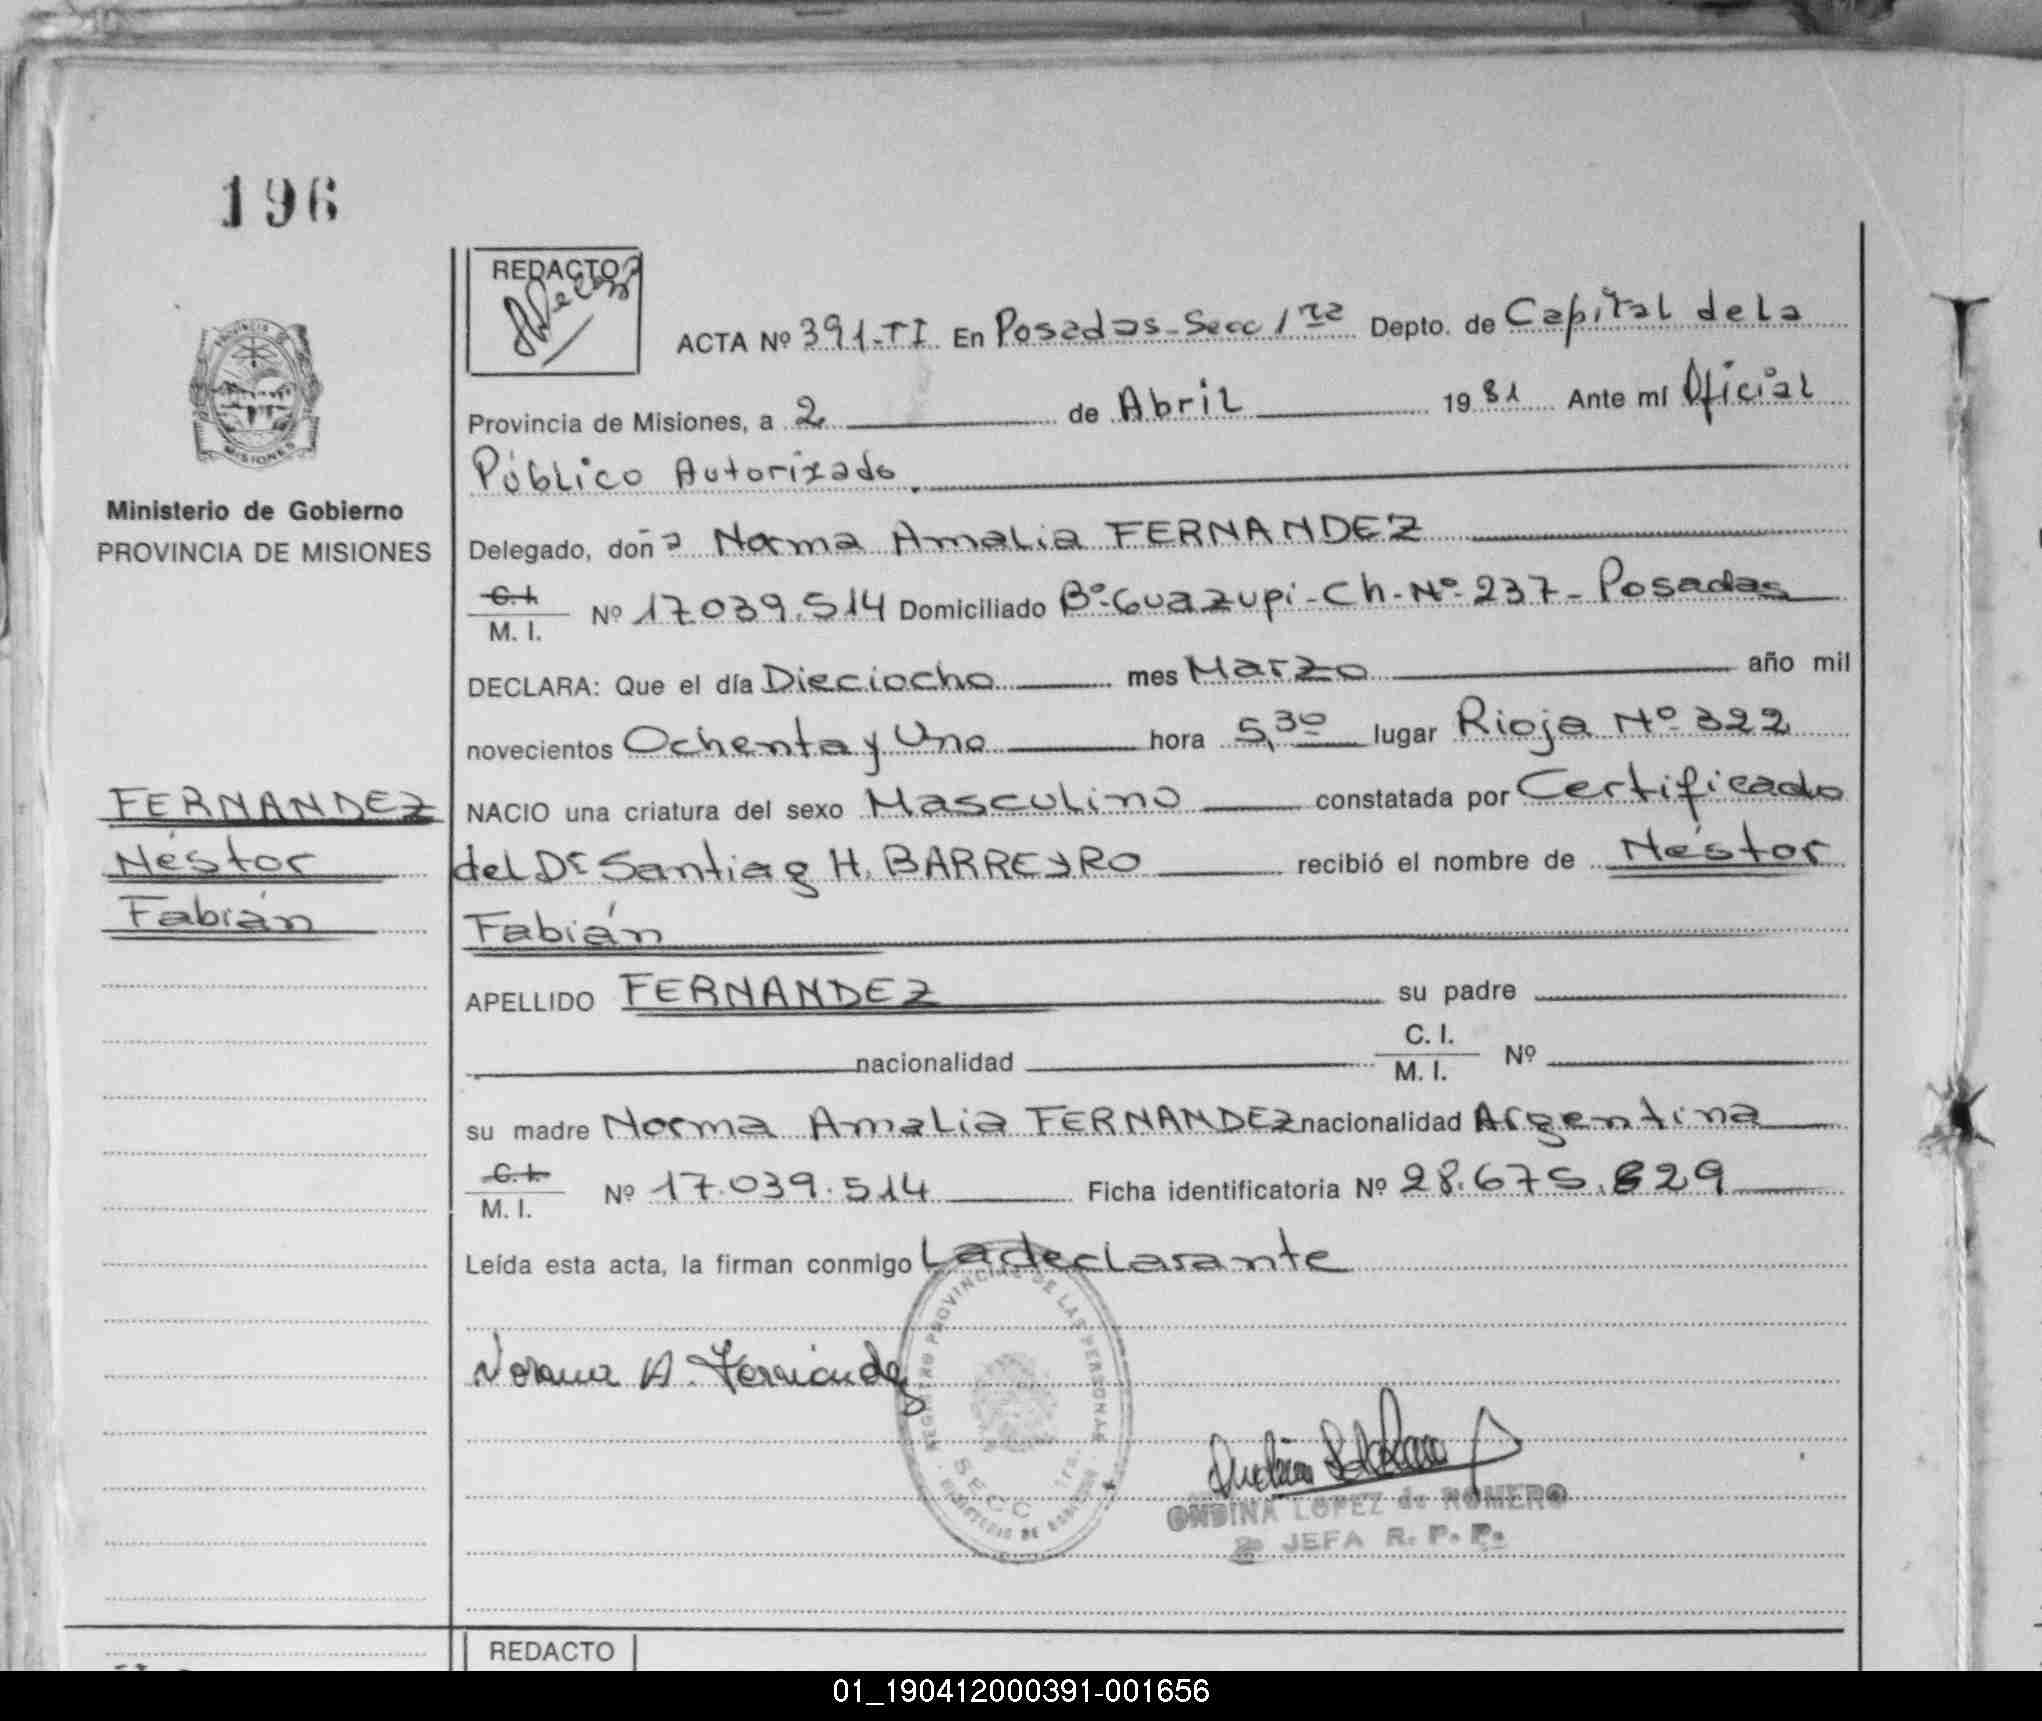 196
REDACTO
ACTA Nº 391-TI En Posadas-Secc 1ra Depto. de Capital de la
Provincia de Misiones, a 2 de Abril 1981 Ante mí Oficial
Público Autorizado
Ministerio de Gobierno
PROVINCIA DE MISIONES
Delegado, doña Norma Amalia FERNANDEZ
C. I. M. I. Nº 17.039.514 Domiciliado Bº-Guazupi-Ch-Nº-237-Posadas
DECLARA: Que el día Dieciocho mes Marzo año mil
novecientos Ochenta y Uno hora 5,30 lugar Rioja Nº 322
FERNANDEZ
Néstor
Fabián
NACIO una criatura del sexo Masculino constatada por Certificado
del Dr Santiag H. BARREYRO recibió el nombre de Néstor
Fabián
APELLIDO FERNANDEZ su padre
nacionalidad C. I. M. I. Nº
su madre Norma Amalia FERNANDEZ nacionalidad Argentina
C. I. M. I. Nº 17.039.514 Ficha identificatoria Nº 28.675.829
Leída esta acta, la firman conmigo La declarante
Norma A. Fernández
REGISTRO PROVINCIAL DE LAS PERSONAS
SECC 1ra.
MINISTERIO DE GOBIERNO
ONDINA LOPEZ de ROMERO
JEFA R. P. P.
REDACTO
01_190412000391-001656